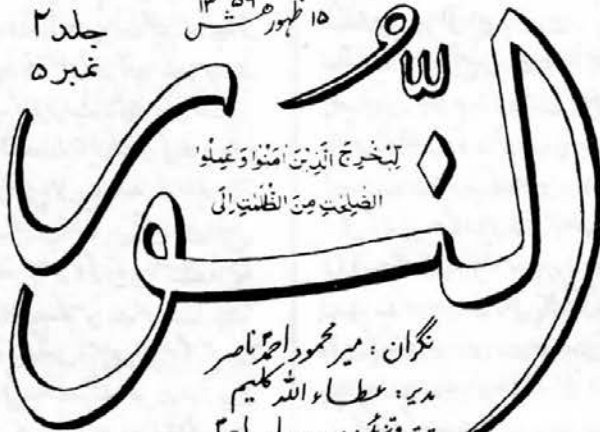 ۱۵ ظہور ۱۳۵۶ ھش
جلد ۲
نمبر ۵
النور
لِيُخْرِجَ الَّذِيْنَ اٰمَنُوْا وَ عَمِلُوا
الصّٰلِحٰتِ مِنَ الظُّلُمٰتِ اِلَى
نگران : میر محمود احمد ناصر
مدیر : عطاء اللہ کلیم